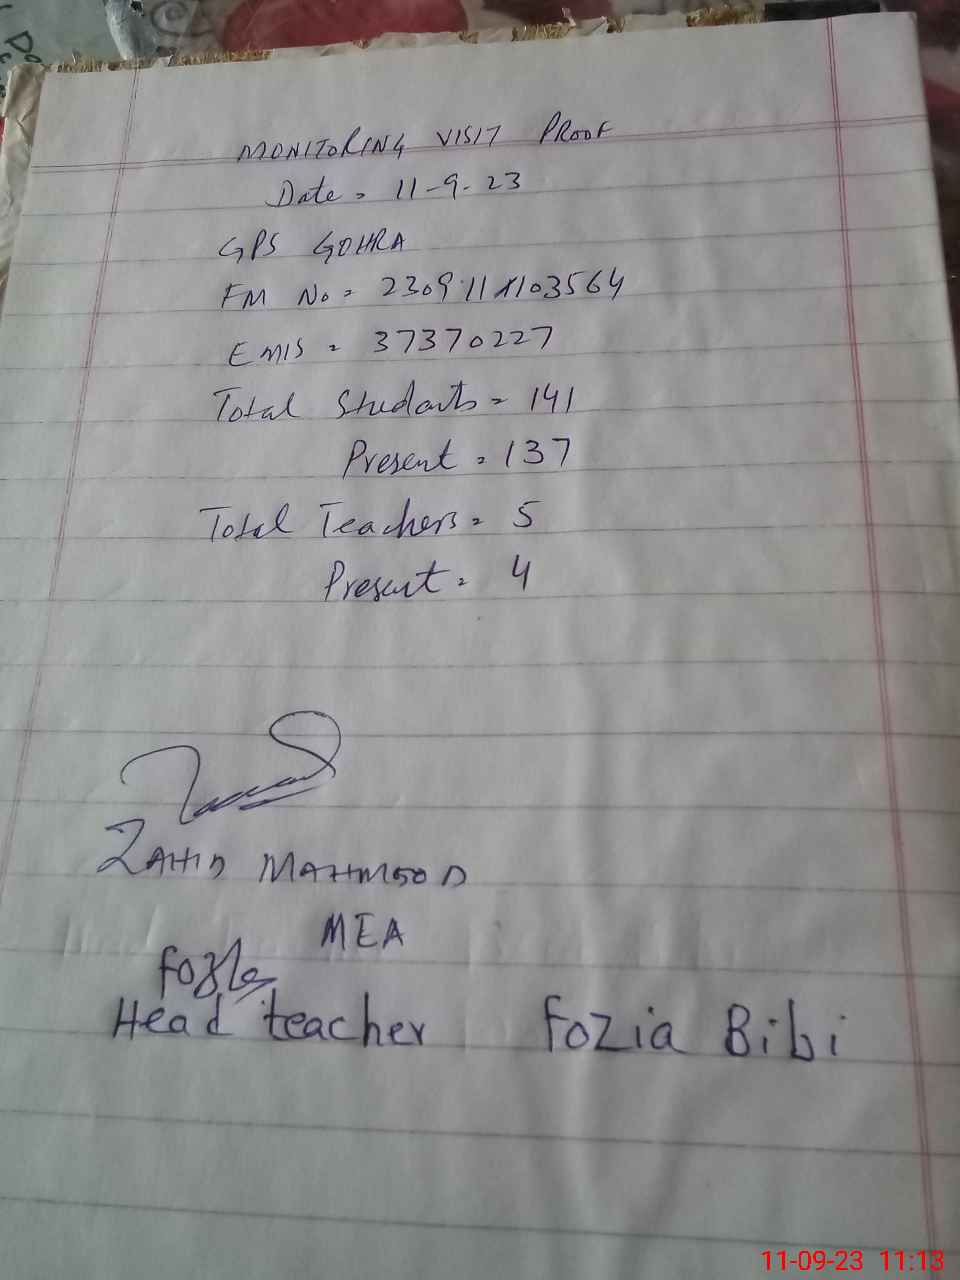 MONITORING VISIT PROOF
Date = 11-9-23
GPS GOHRA
FM No = 230911103564
EMIS = 37370227
Total Students = 141
Present = 137
Total Teachers = 5
Present = 4
ZAHID MAHMOOD
MEA
Head teacher Fozia Bibi
11-09-23 11:13